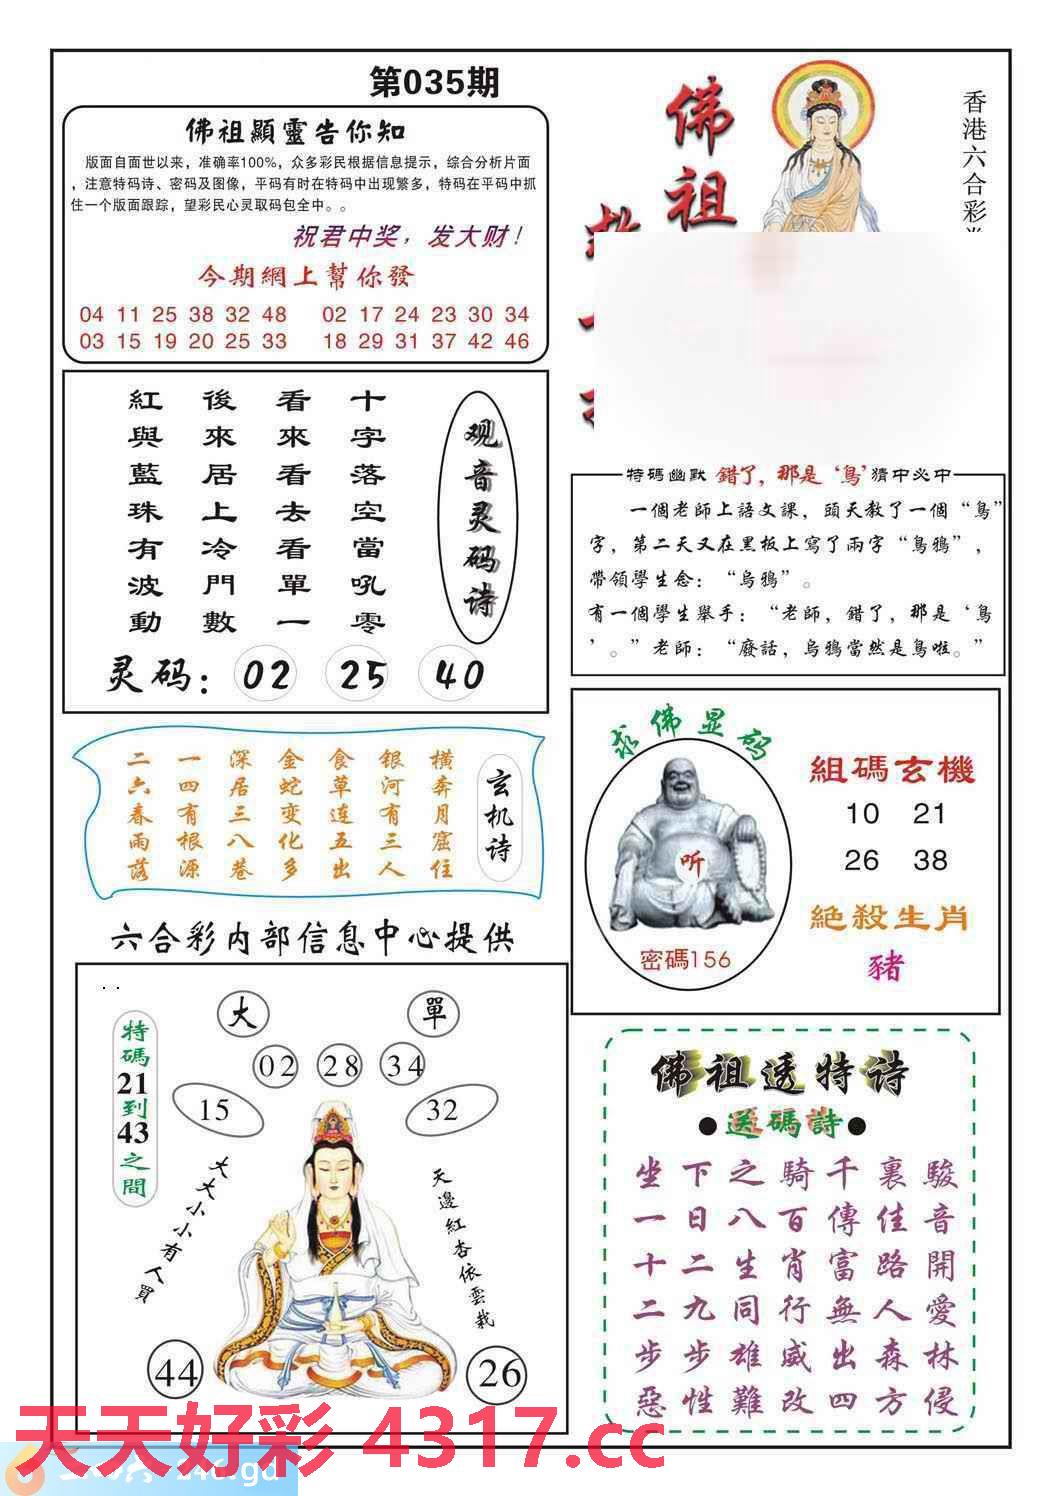 第035期
佛祖顯靈告你知
版面自面世以来，准确率100%，众多彩民根据信息提示，综合分析片面
，注意特码诗、密码及图像，平码有时在特码中出现繁多，特码在平码中抓
住一个版面跟踪，望彩民心灵取码包全中。。
祝君中奖，发大财！
今期網上幫你發
04 11 25 38 32 48 02 17 24 23 30 34
03 15 19 20 25 33 18 29 31 37 42 46
佛祖
香港六合彩
观音灵码诗
十字落空當吼零
看來看去看單一
後來居上冷門數
紅與藍珠有波動
灵码：02 25 40
特碼幽默 錯了，那是‘鳥’猜中必中
一個老師上語文課，頭天教了一個“鳥”
字，第二天又在黑板上寫了兩字“鳥鴉”，
帶領學生念：“烏鴉”。
有一個學生舉手：“老師，錯了，那是‘鳥
’。”老師：“廢話，烏鴉當然是鳥啦。”
玄机诗
橫奔月窟住
银河有三人
食草连五出
金蛇变化多
深居三八巷
一四有根源
二六春雨落
求佛显码
听
密碼156
組碼玄機
10 21
26 38
絕殺生肖
豬
六合彩内部信息中心提供
大 單
02 28 34
15 32
特碼21到43之間
大大小小有人買
天邊紅杏依雲栽
44 26
佛祖透特诗
●送碼詩●
駿音開愛林侵
裏佳路人森方
千傳富無出四
騎百肖行威改
之八生同雄難
下日二九步性
坐一十二步惡
天天好彩 4317.cc
246.gd